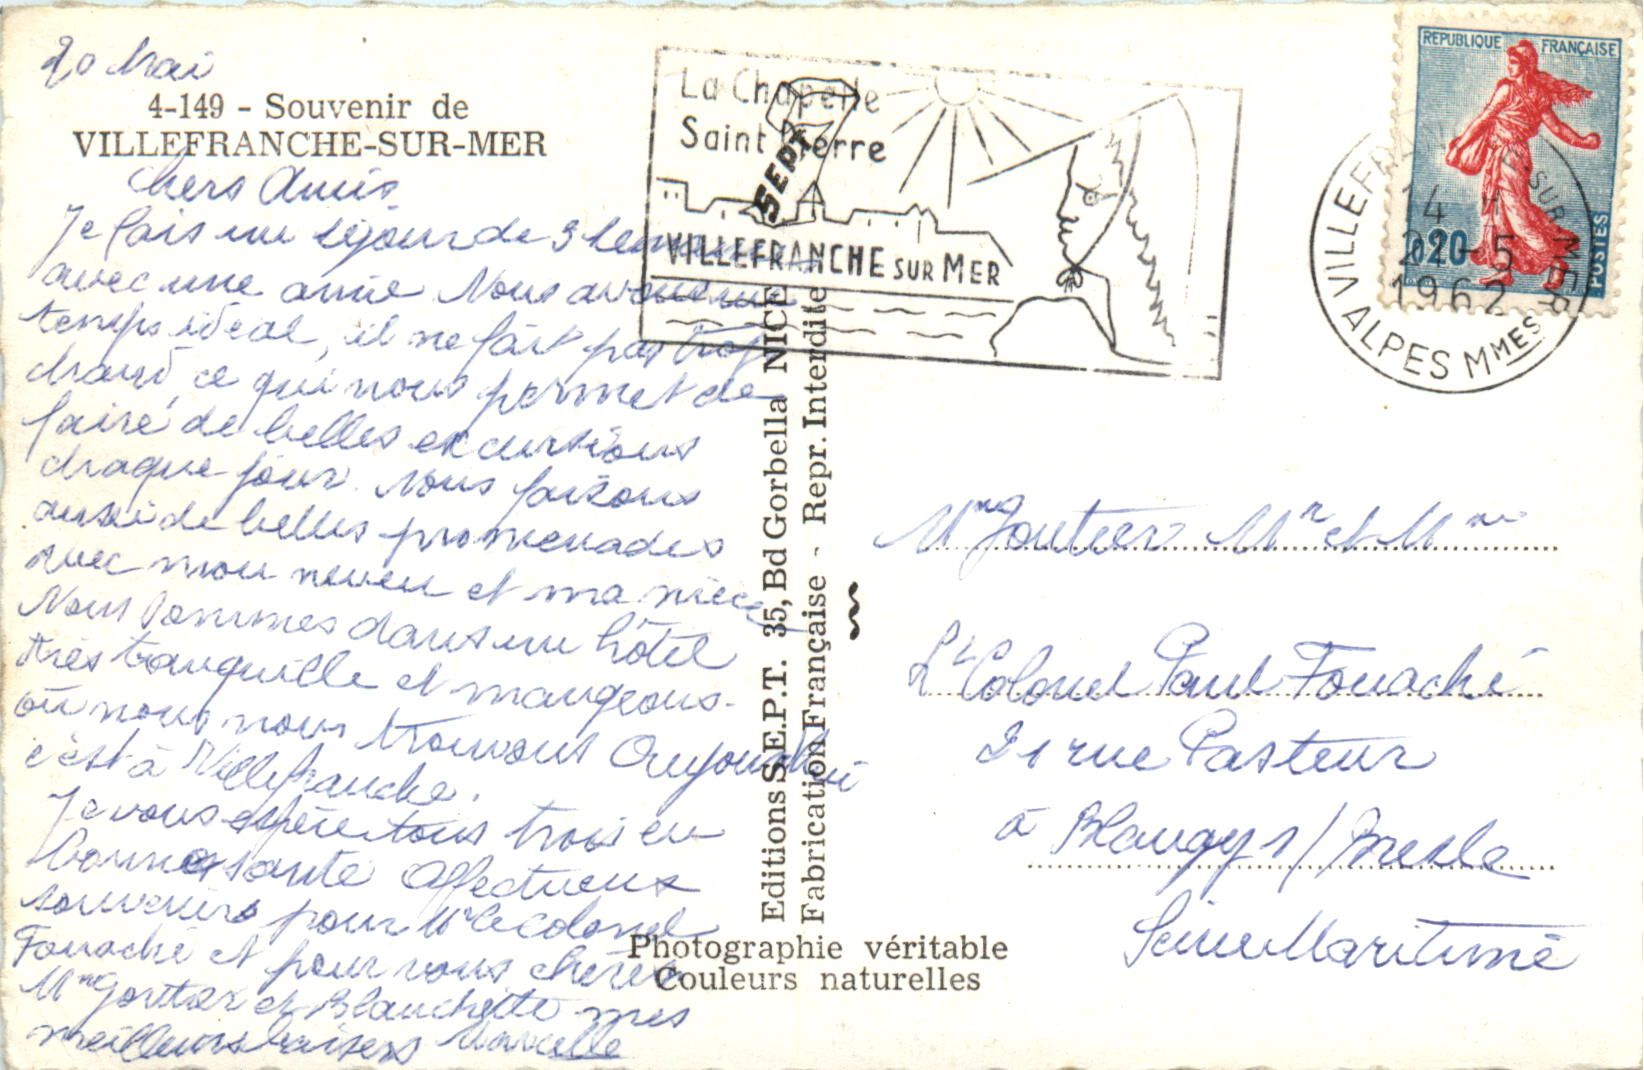 20 Mai
4-149 - Souvenir de
VILLEFRANCHE-SUR-MER
Chers Amis
Je fais un séjour de 3
avec une amie Nous avons un
temps idéal, il ne fait pas trop
chaud, ce qui nous permet de
faire de belles excursions
chaque jour. Nous faisons
aussi de belles promenades
avec mon neveu et ma nièce
Nous sommes dans un hôtel
très tranquille et mangeons
où nous nous trouvons Aujourd'hui
c'est à Villefranche.
Je vous espère tous trois en
bonne santé Affectueux
souvenirs pour Mr le Colonel
Fouaché et pour vous chères
Mme Goutier et Blanchette mes
meilleurs baisers Marcelle
La Chapelle
Saint Pierre
VILLEFRANCHE SUR MER
SEPT
Editions S.E.P.T. 35, Bd Gorbella NICE
Fabrication Française - Repr. Interdite
Photographie véritable
Couleurs naturelles
REPUBLIQUE FRANÇAISE
0,20
POSTES
VILLEFRANCHE SUR MER
14 H
21-5
1962
ALPES MMES
Mme Goutier Mr et Mme
Lt Colonel Paul Fouaché
21 rue Pasteur
à Blangy s/Bresle
Seine Maritime